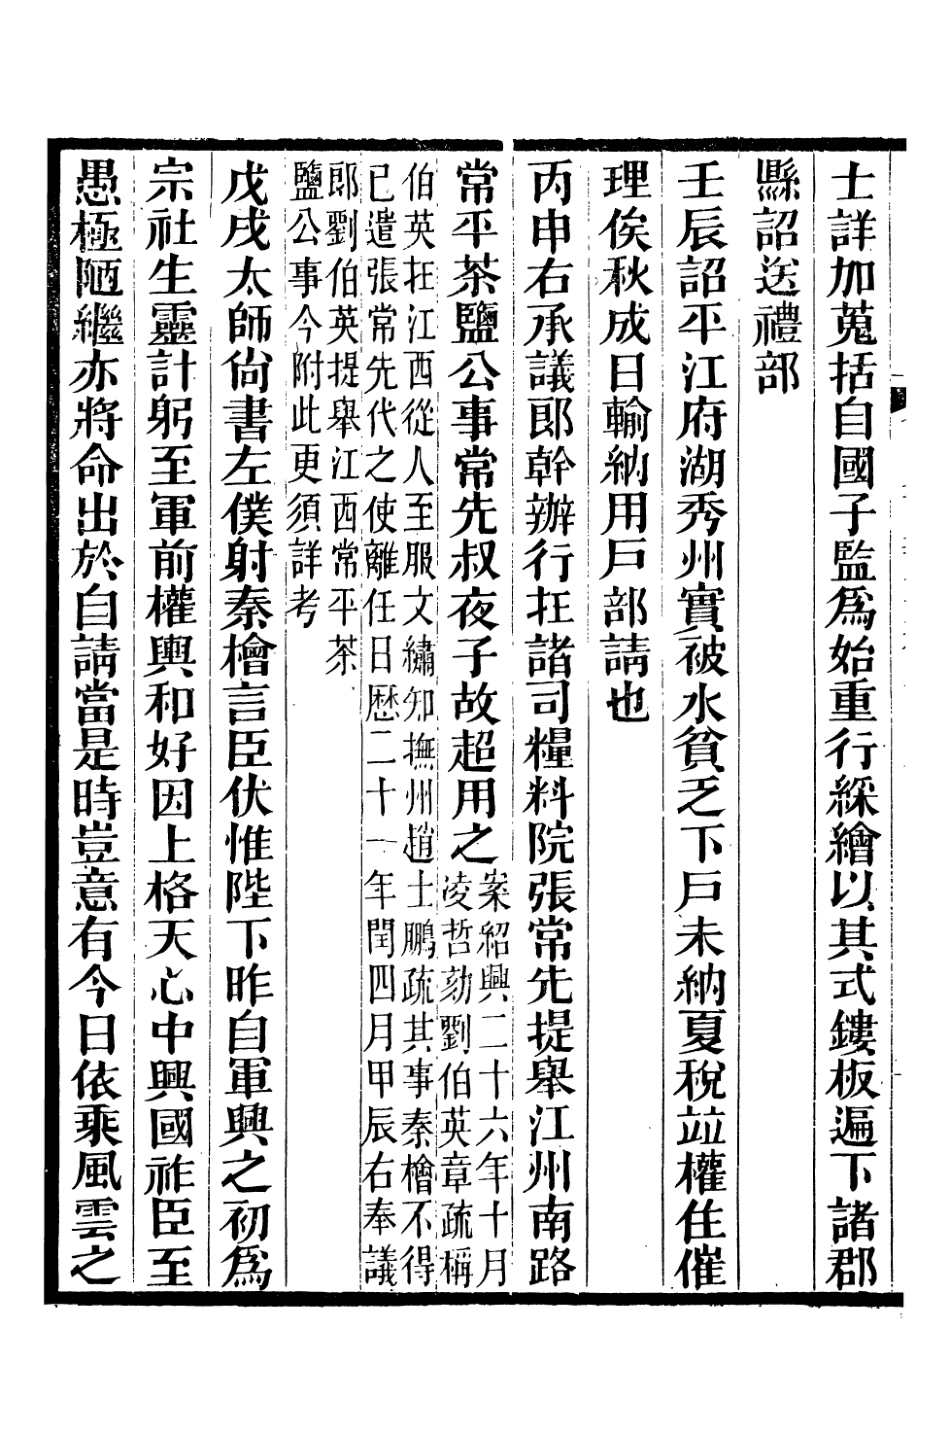 士詳加蒐括自國子監爲始重行綵繪以其式鏤板遍下諸郡
縣詔送禮部
壬辰詔平江府湖秀州實被水貧乏下戸未納夏稅竝權住催
理俟秋成日輸納用戸部請也
丙申右承議郎幹辦行在諸司糧料院張常先提舉江州南路
常平茶鹽公事常先叔夜子故超用之
案紹興二十六年十月
凌哲劾劉伯英章疏稱
伯英在江西從人至服文繡知撫州趙士鵬疏其事秦檜不得
已遣張常先代之使離任日歷二十一年閏四月甲辰右奉議
郎劉伯英提舉江西常平茶
鹽公事今附此更須詳考
戊戌太師尚書左僕射秦檜言臣伏惟陛下昨自軍興之初爲
宗社生靈計躬至軍前權輿和好因上格天心中興國祚臣至
愚極陋繼亦將命出於自請當是時豈意有今日依乘風雲之